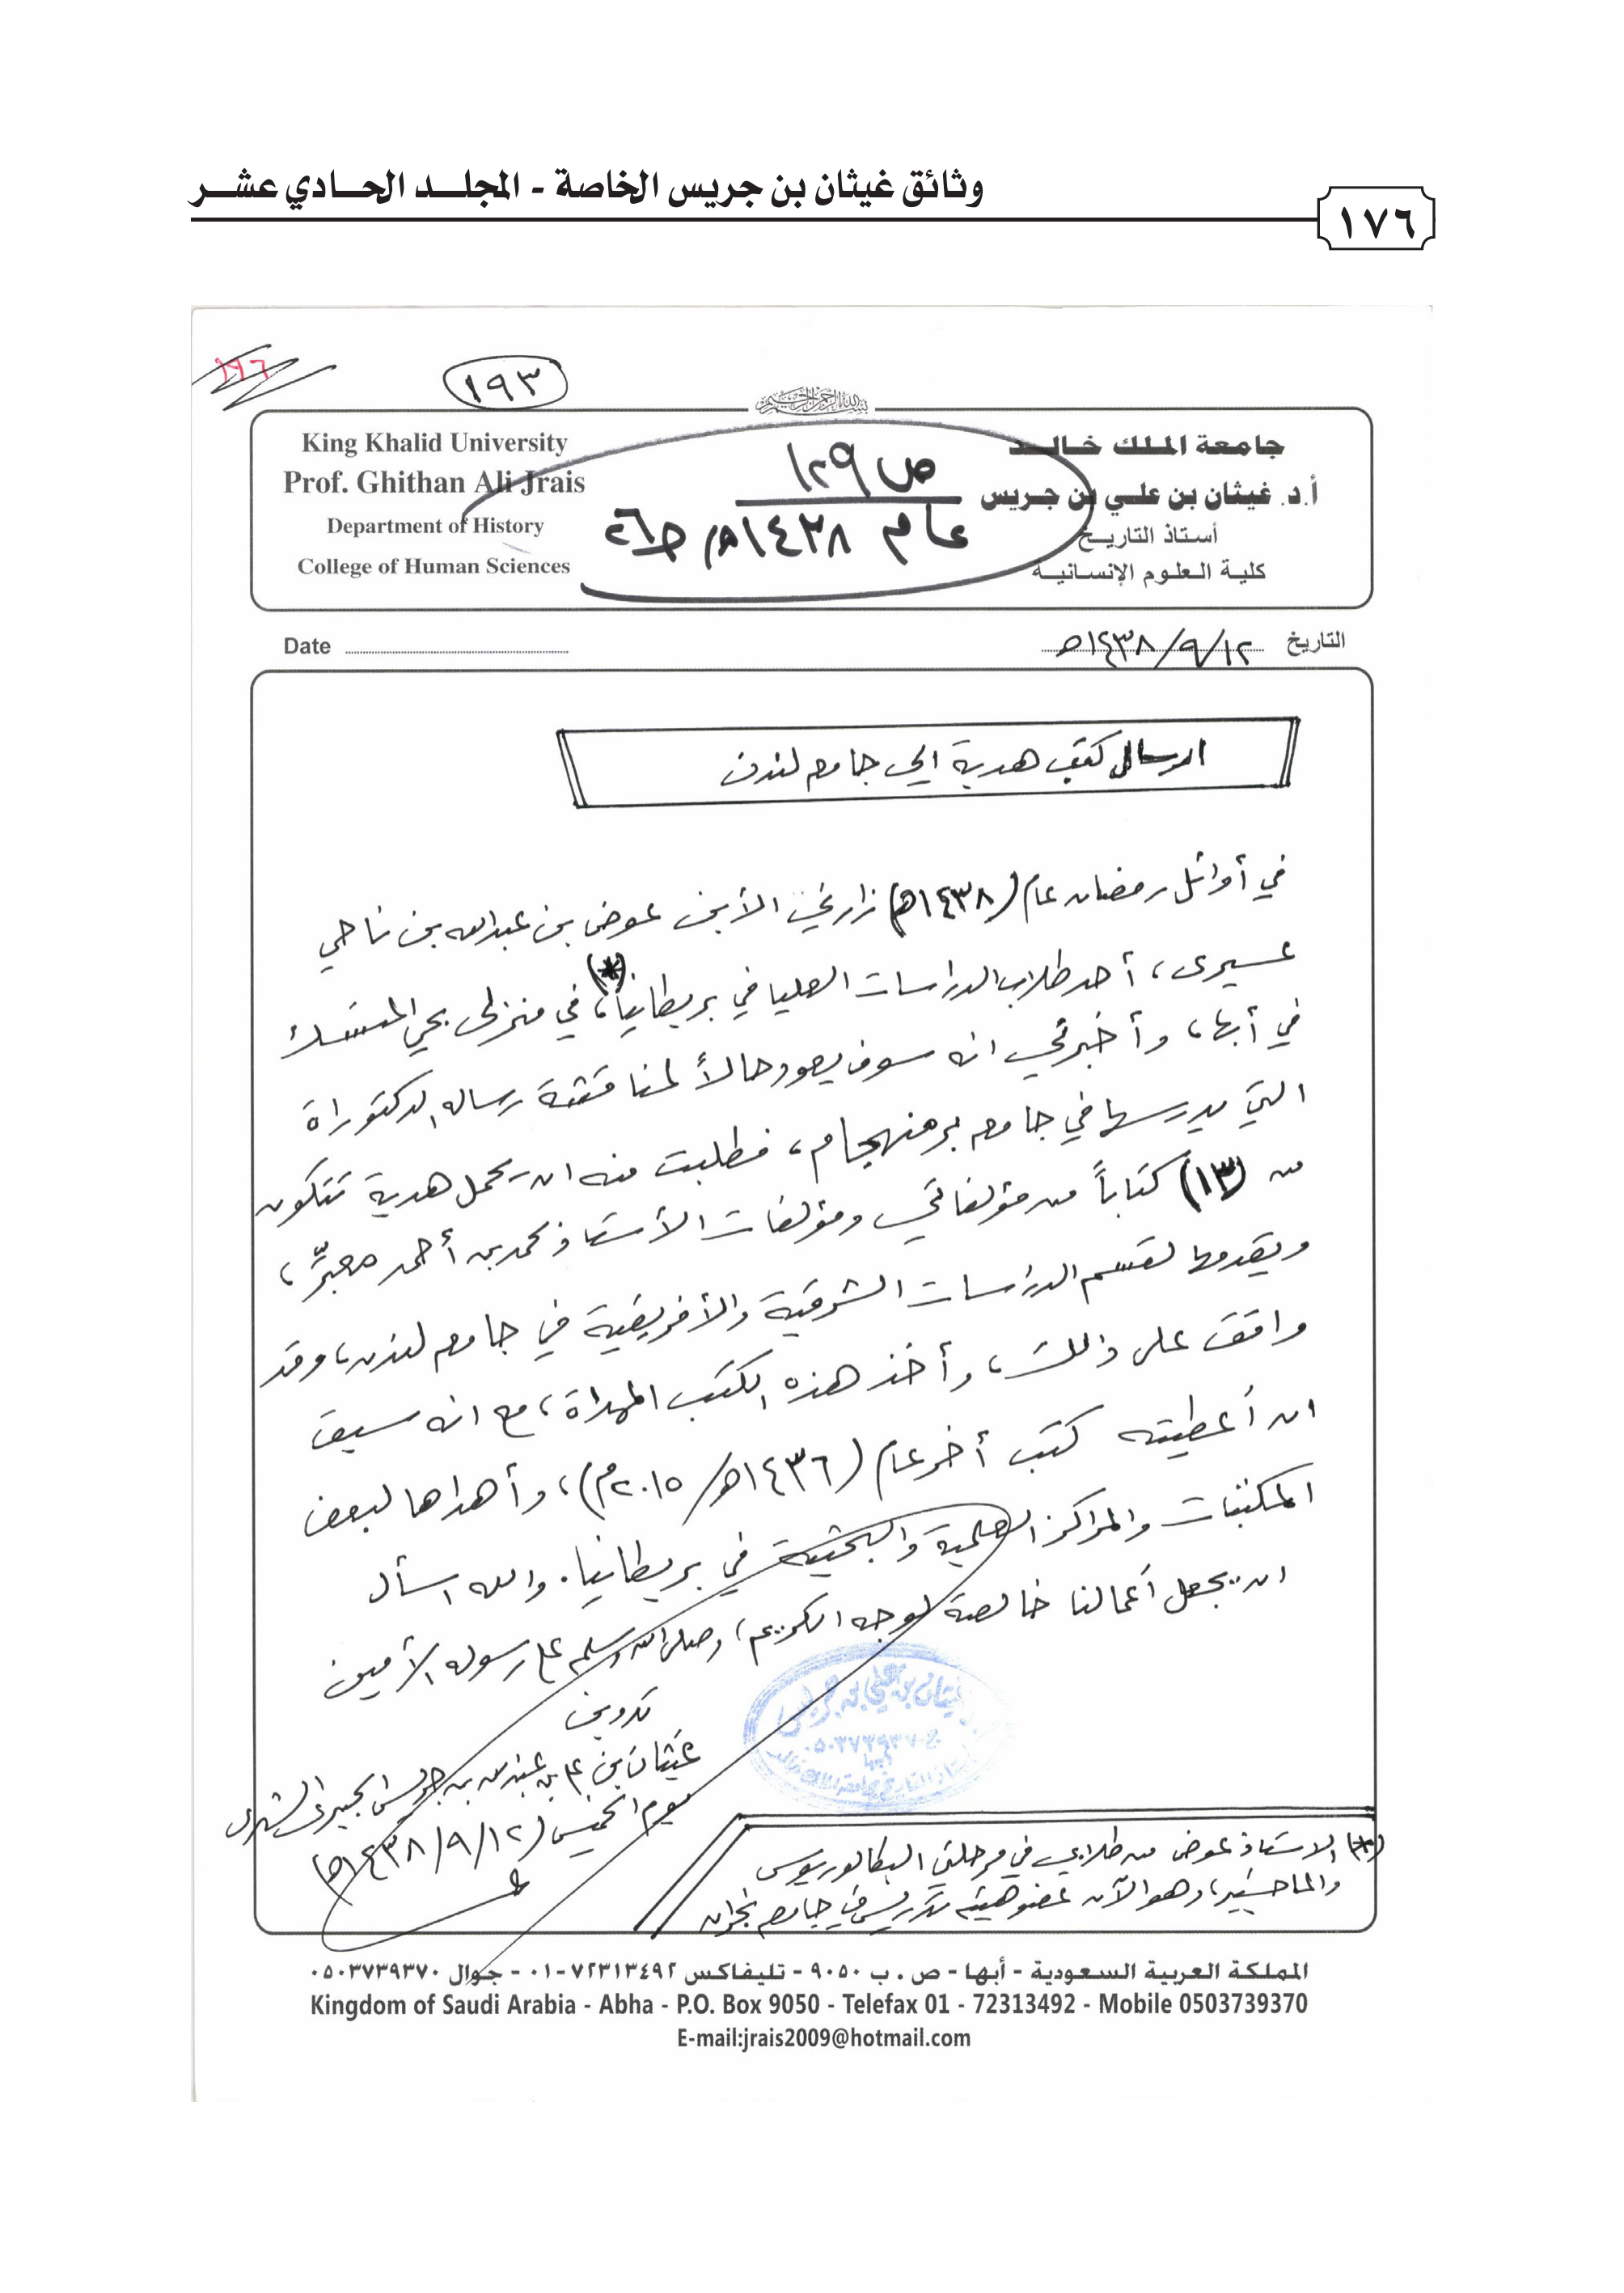 وثائق غيثان بن جريس الخاصة - المجلد الحادي عشر
١٧٦
١٩٣
بسم الله الرحمن الرحيم
King Khalid University
Prof. Ghithan Ali Jrais
Department of History
College of Human Sciences
جامعة الملك خالد
أ.د. غيثان بن علي بن جريس
أستاذ التاريخ
كلية العلوم الإنسانية
ص ١٢٩
عام ١٤٣٨هـ/ ج٢٦
التاريخ ١٤٣٨/٩/١٢هـ
Date
ارسال كتب هدية الى جامعه لندن
في أوائل رمضان عام (١٤٣٨هـ) زارني الأبن عوض بن عبدالله بن ناحي
عسيرى، أحد طلاب الدراسات العليا في بريطانيا(*)، في منزلى بحي المنسك
في أبها، وأخبرني انه سوف يعود حالاً لمناقشة رساله الدكتوراة
التي يدرسها في جامعه برمنهجام، فطلبت منه ان يحمل هدية تتكون
من (١٣) كتاباً من مؤلفاتي ومؤلفات الأستاذ محمد بن أحمد معبّر،
ويقدمها لقسم الدراسات الشرقية والأفريقية في جامعه لندن، وقد
وافق على ذالك، وأخذ هذه الكتب المهداة، مع انه سبق
ان أعطيته كتب أخر عام (١٤٣٦هـ/٢٠١٥م)، وأهداها لبعض
المكتبات والمراكز العلمية والبحثية في بريطانيا. والله اسأل
ان يجعل أعمالنا خالصة لوجه الكريم، وصلى الله وسلم على رسوله الأمين
تدوين
غيثان بن علي بن عبدالله بن جريس الجبيرى الشهرى
يوم الخميس (١٤٣٨/٩/١٢هـ)
غيثان بن علي بن جريس
٠٥٠٣٧٣٩٣٧٠
أبها
(*) الاستاذ عوض من طلابي في مرحلتي البكالوريوس
والماجستير، وهو الآن عضو هيئه تدريس في جامعه نجران
المملكة العربية السعودية - أبها - ص . ب ٩٠٥٠ - تليفاكس ٧٢٣١٣٤٩٢-٠١ - جوال ٠٥٠٣٧٣٩٣٧٠
Kingdom of Saudi Arabia - Abha - P.O. Box 9050 - Telefax 01 - 72313492 - Mobile 0503739370
E-mail:jrais2009@hotmail.com